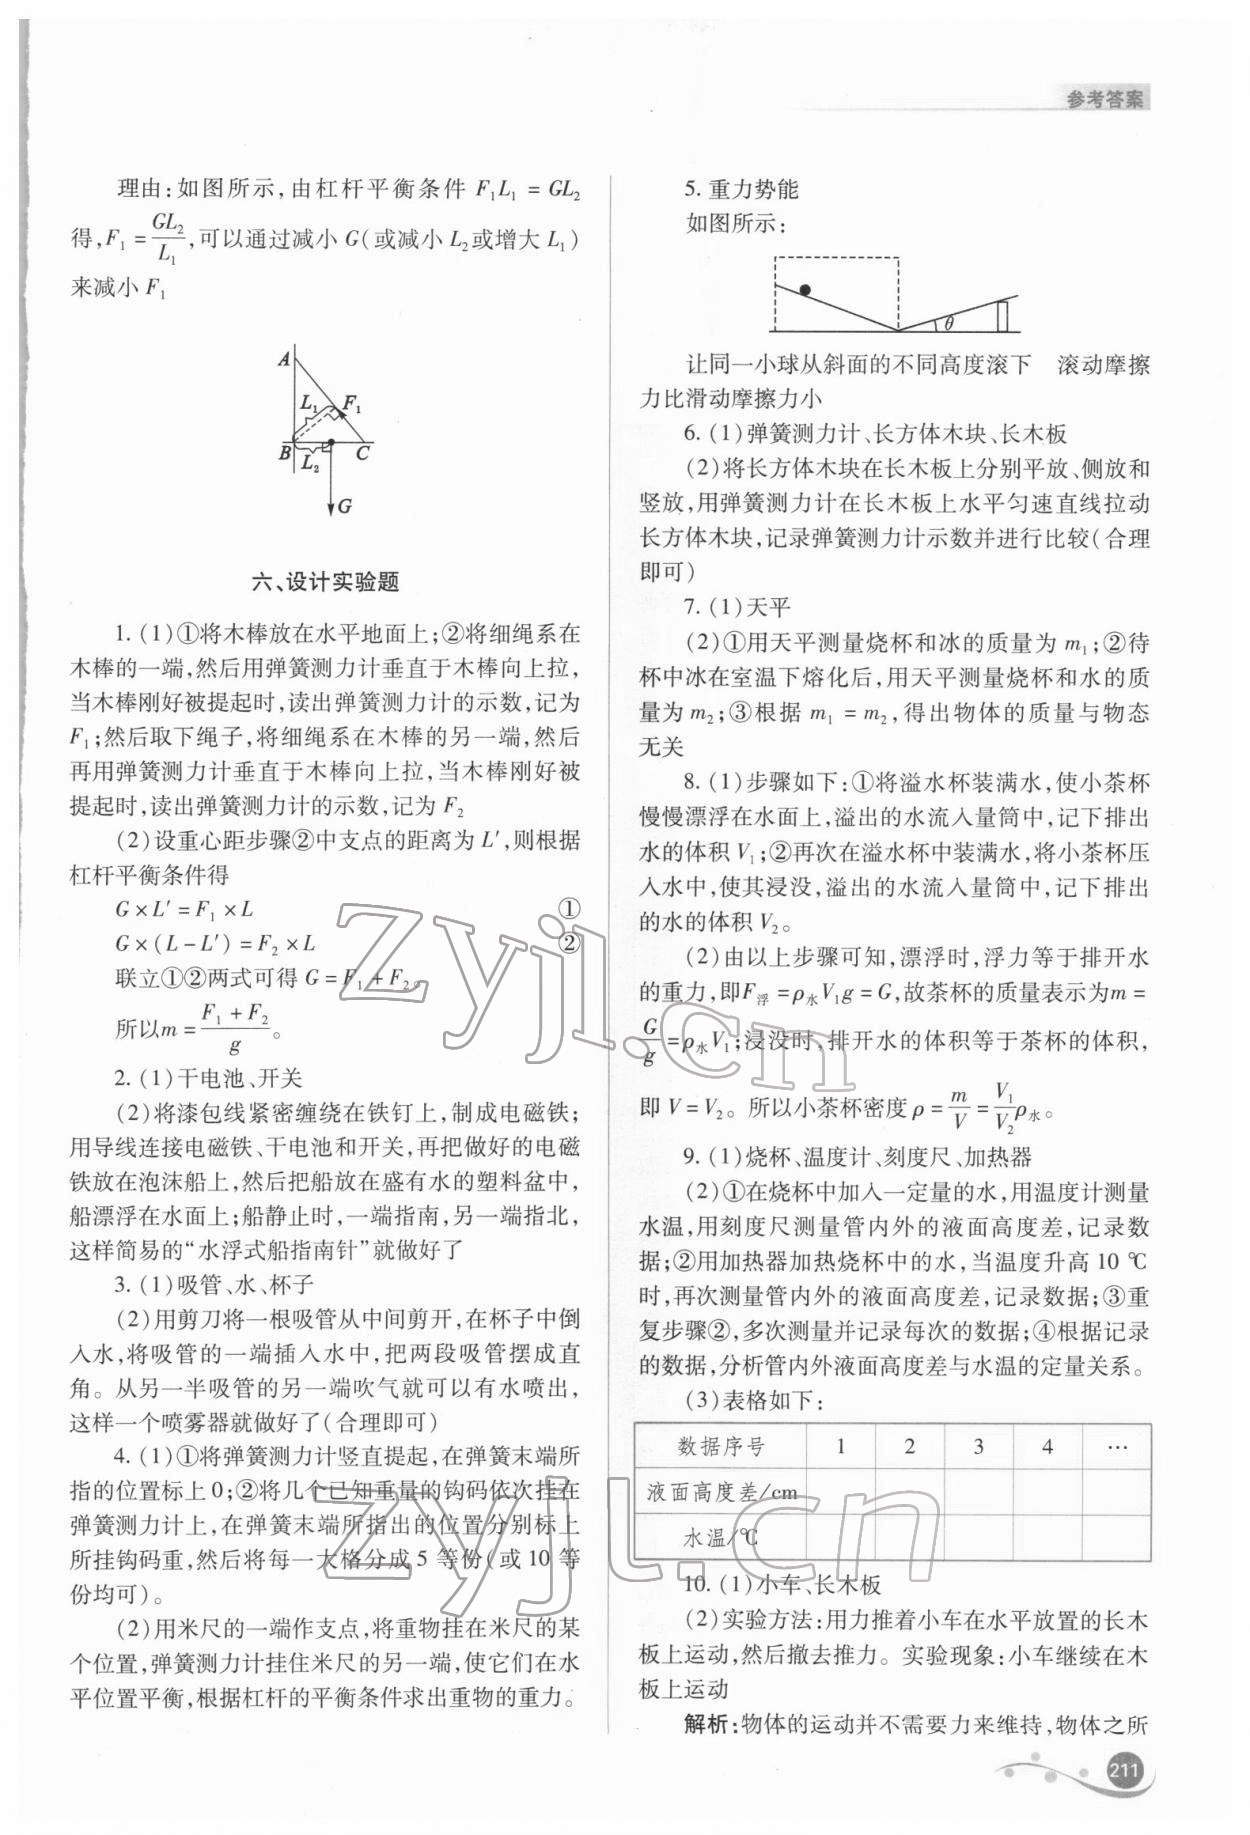 参考答案
理由:如图所示,由杠杆平衡条件 F₁L₁ = GL₂
得,F₁ = GL₂/L₁,可以通过减小 G(或减小 L₂或增大 L₁)
来减小 F₁
A
L₁ F₁
B L₂ C
G
六、设计实验题
1. (1)①将木棒放在水平地面上;②将细绳系在
木棒的一端,然后用弹簧测力计垂直于木棒向上拉,
当木棒刚好被提起时,读出弹簧测力计的示数,记为
F₁;然后取下绳子,将细绳系在木棒的另一端,然后
再用弹簧测力计垂直于木棒向上拉,当木棒刚好被
提起时,读出弹簧测力计的示数,记为 F₂
(2)设重心距步骤②中支点的距离为 L′,则根据
杠杆平衡条件得
G×L′=F₁×L ①
G×(L-L′)=F₂×L ②
联立①②两式可得 G=F₁+F₂。
所以m=(F₁+F₂)/g。
2. (1)干电池、开关
(2)将漆包线紧密缠绕在铁钉上,制成电磁铁;
用导线连接电磁铁、干电池和开关,再把做好的电磁
铁放在泡沫船上,然后把船放在盛有水的塑料盆中,
船漂浮在水面上;船静止时,一端指南,另一端指北,
这样简易的“水浮式船指南针”就做好了
3. (1)吸管、水、杯子
(2)用剪刀将一根吸管从中间剪开,在杯子中倒
入水,将吸管的一端插入水中,把两段吸管摆成直
角。从另一半吸管的另一端吹气就可以有水喷出,
这样一个喷雾器就做好了(合理即可)
4. (1)①将弹簧测力计竖直提起,在弹簧末端所
指的位置标上0;②将几个已知重量的钩码依次挂在
弹簧测力计上,在弹簧末端所指出的位置分别标上
所挂钩码重,然后将每一大格分成5等份(或10等
份均可)。
(2)用米尺的一端作支点,将重物挂在米尺的某
个位置,弹簧测力计挂住米尺的另一端,使它们在水
平位置平衡,根据杠杆的平衡条件求出重物的重力。
5. 重力势能
如图所示:
θ
让同一小球从斜面的不同高度滚下 滚动摩擦
力比滑动摩擦力小
6. (1)弹簧测力计、长方体木块、长木板
(2)将长方体木块在长木板上分别平放、侧放和
竖放,用弹簧测力计在长木板上水平匀速直线拉动
长方体木块,记录弹簧测力计示数并进行比较(合理
即可)
7. (1)天平
(2)①用天平测量烧杯和冰的质量为 m₁;②待
杯中冰在室温下熔化后,用天平测量烧杯和水的质
量为 m₂;③根据 m₁ = m₂,得出物体的质量与物态
无关
8. (1)步骤如下:①将溢水杯装满水,使小茶杯
慢慢漂浮在水面上,溢出的水流入量筒中,记下排出
水的体积V₁;②再次在溢水杯中装满水,将小茶杯压
入水中,使其浸没,溢出的水流入量筒中,记下排出
的水的体积V₂。
(2)由以上步骤可知,漂浮时,浮力等于排开水
的重力,即F浮=ρ水V₁g=G,故茶杯的质量表示为m=
G/g=ρ水V₁;浸没时,排开水的体积等于茶杯的体积,
即 V=V₂。所以小茶杯密度 ρ=m/V=V₁/V₂ρ水。
9. (1)烧杯、温度计、刻度尺、加热器
(2)①在烧杯中加入一定量的水,用温度计测量
水温,用刻度尺测量管内外的液面高度差,记录数
据;②用加热器加热烧杯中的水,当温度升高10 ℃
时,再次测量管内外的液面高度差,记录数据;③重
复步骤②,多次测量并记录每次的数据;④根据记录
的数据,分析管内外液面高度差与水温的定量关系。
(3)表格如下:
数据序号 1 2 3 4 …
液面高度差/cm
水温/℃
10. (1)小车、长木板
(2)实验方法:用力推着小车在水平放置的长木
板上运动,然后撤去推力。实验现象:小车继续在木
板上运动
解析:物体的运动并不需要力来维持,物体之所
211
zyjl.cn
zyjl.cn